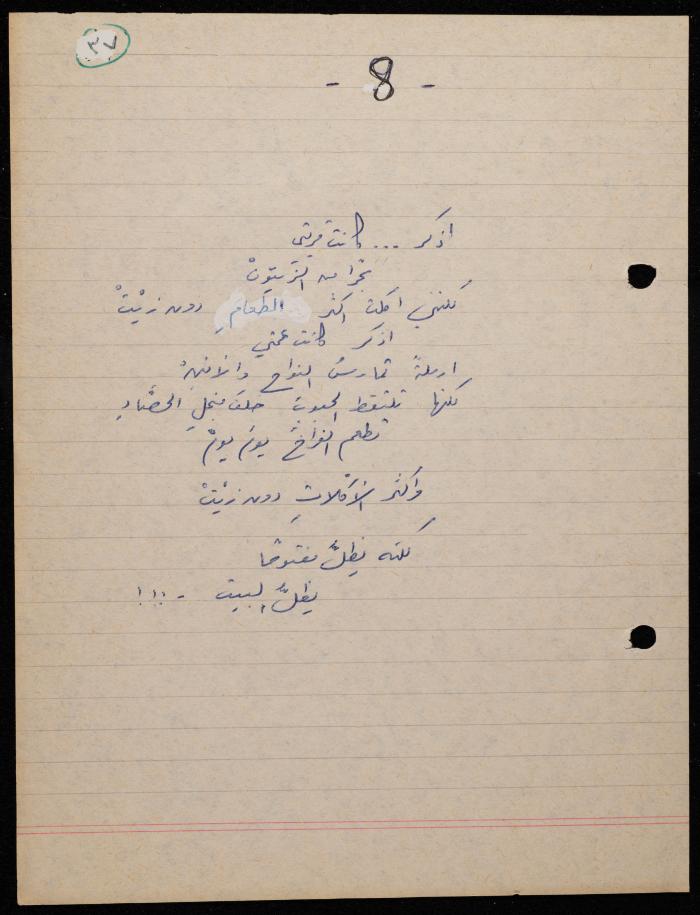 ٣٧
- 8 -
اذكر ... كانت قريتي
بحرا من الزيتونْ
لكنني اكلت اكثر الطعامِ دون زيْتْ
اذكر كانت عمتي
ارملةً تمارسُ النواح والانينْ
لكنها تلتقط الحبوبَ خلفَ منجلِ الحصَّادِ
تطعم الفراخَ يومَ يومْ
واكثر الأكلاتِ دون زيْتْ
لكنه يظلُّ مفتوحًا
يظلُّ البيت - !!!